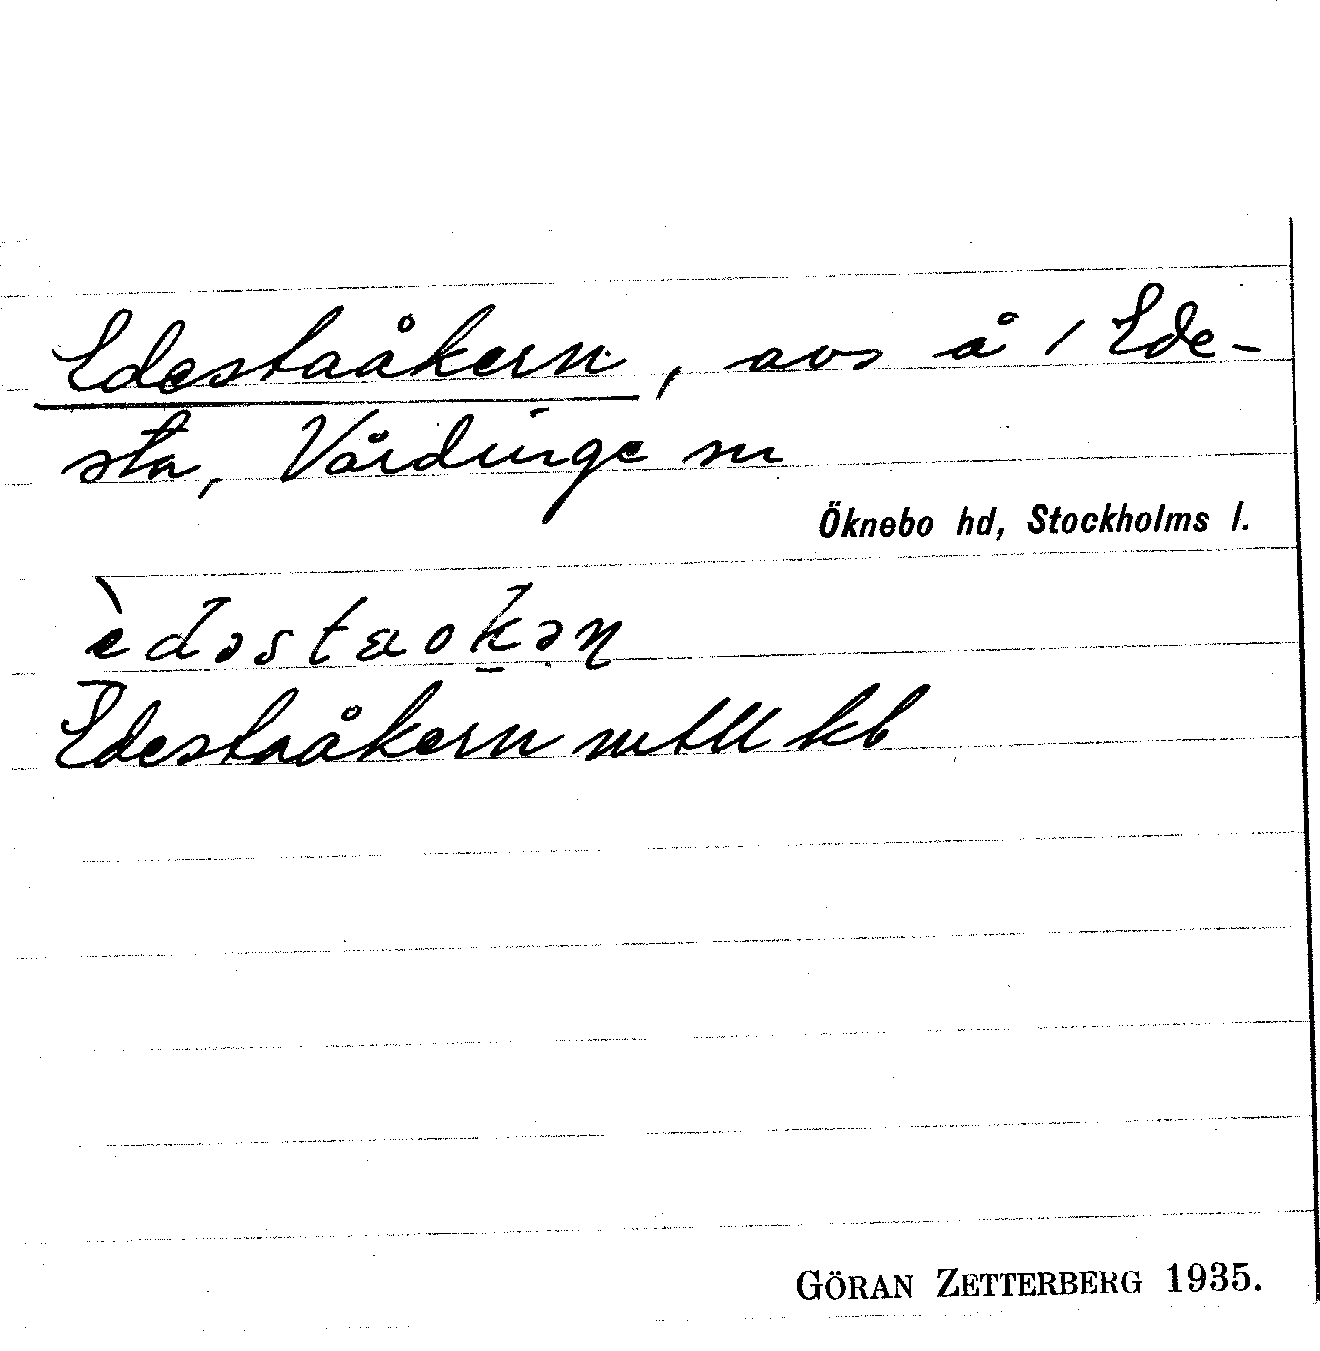 Edestaåkern, avs å / Ede-
sta, Vårdinge sn
Öknebo hd, Stockholms l.
èdəstaoḵəṇ
Edestaåkern mtll kb
GÖRAN ZETTERBERG 1935.